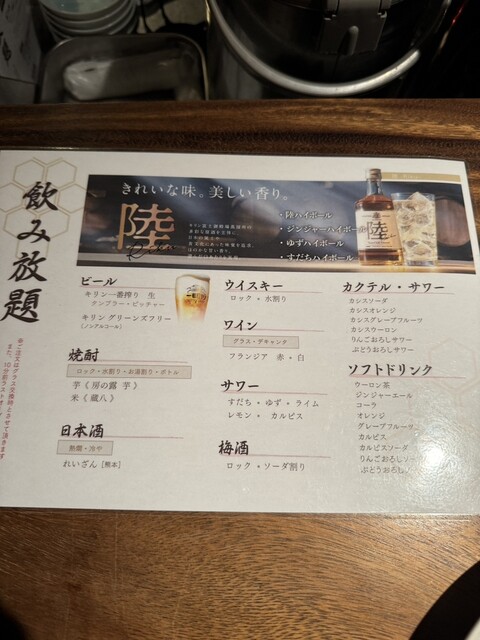 飲み放題
※ご注文はグラス交換時とさせて頂きます
また、10分前ラストオーダー
きれいな味。美しい香り。
陸
・陸ハイボール
・ジンジャーハイボール
・ゆずハイボール
・すだちハイボール
陸
ビール
キリン一番搾り 生
タンブラー・ピッチャー
キリン グリーンズフリー
(ノンアルコール)
焼酎
ロック・水割り・お湯割り・ボトル
芋《 房の露 芋 》
米《 蔵八 》
日本酒
熱燗・冷や
れいざん [熊本]
ウイスキー
ロック・水割り
ワイン
グラス・デキャンタ
フランジア 赤・白
サワー
すだち・ゆず・ライム
レモン・ カルピス
梅酒
ロック・ソーダ割り
カクテル・サワー
カシスソーダ
カシスオレンジ
カシスグレープフルーツ
カシスウーロン
りんごおろしサワー
ぶどうおろしサワー
ソフトドリンク
ウーロン茶
ジンジャーエール
コーラ
オレンジ
グレープフルーツ
カルピス
カルピスソーダ
りんごおろしソーダ
ぶどうおろし